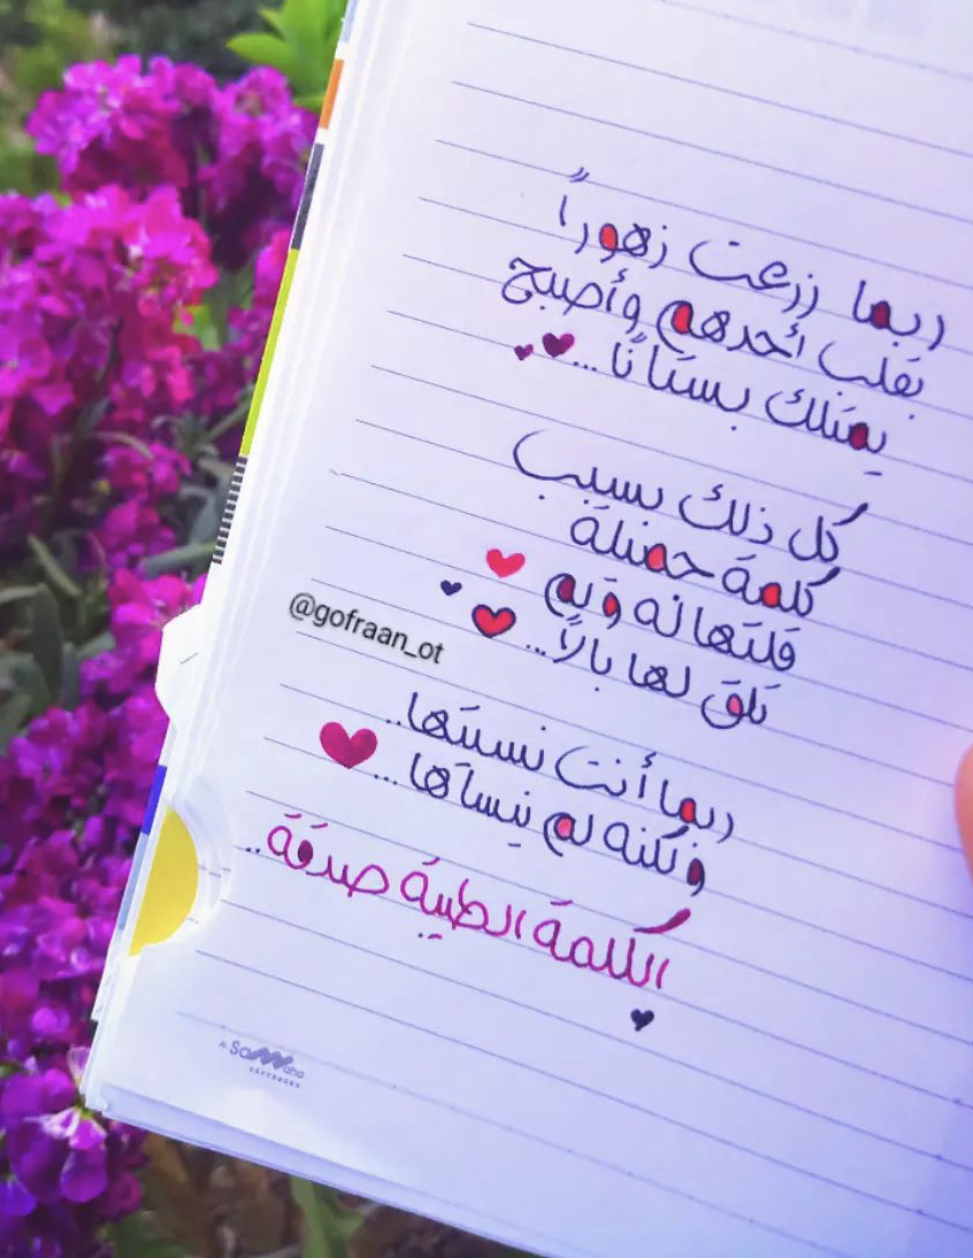 ربما زرعت زهوراً
بقلب أحدهم وأصبح
يمتلك بستانًا...
كل ذلك بسبب
كلمة جميلة
قلتها له ولم
تلقِ لها بالاً...
@gofraan_ot
ربما أنت نسيتها..
ولكنه لم ينساها...
الكلمة الطيبة صدقة..
Samaha